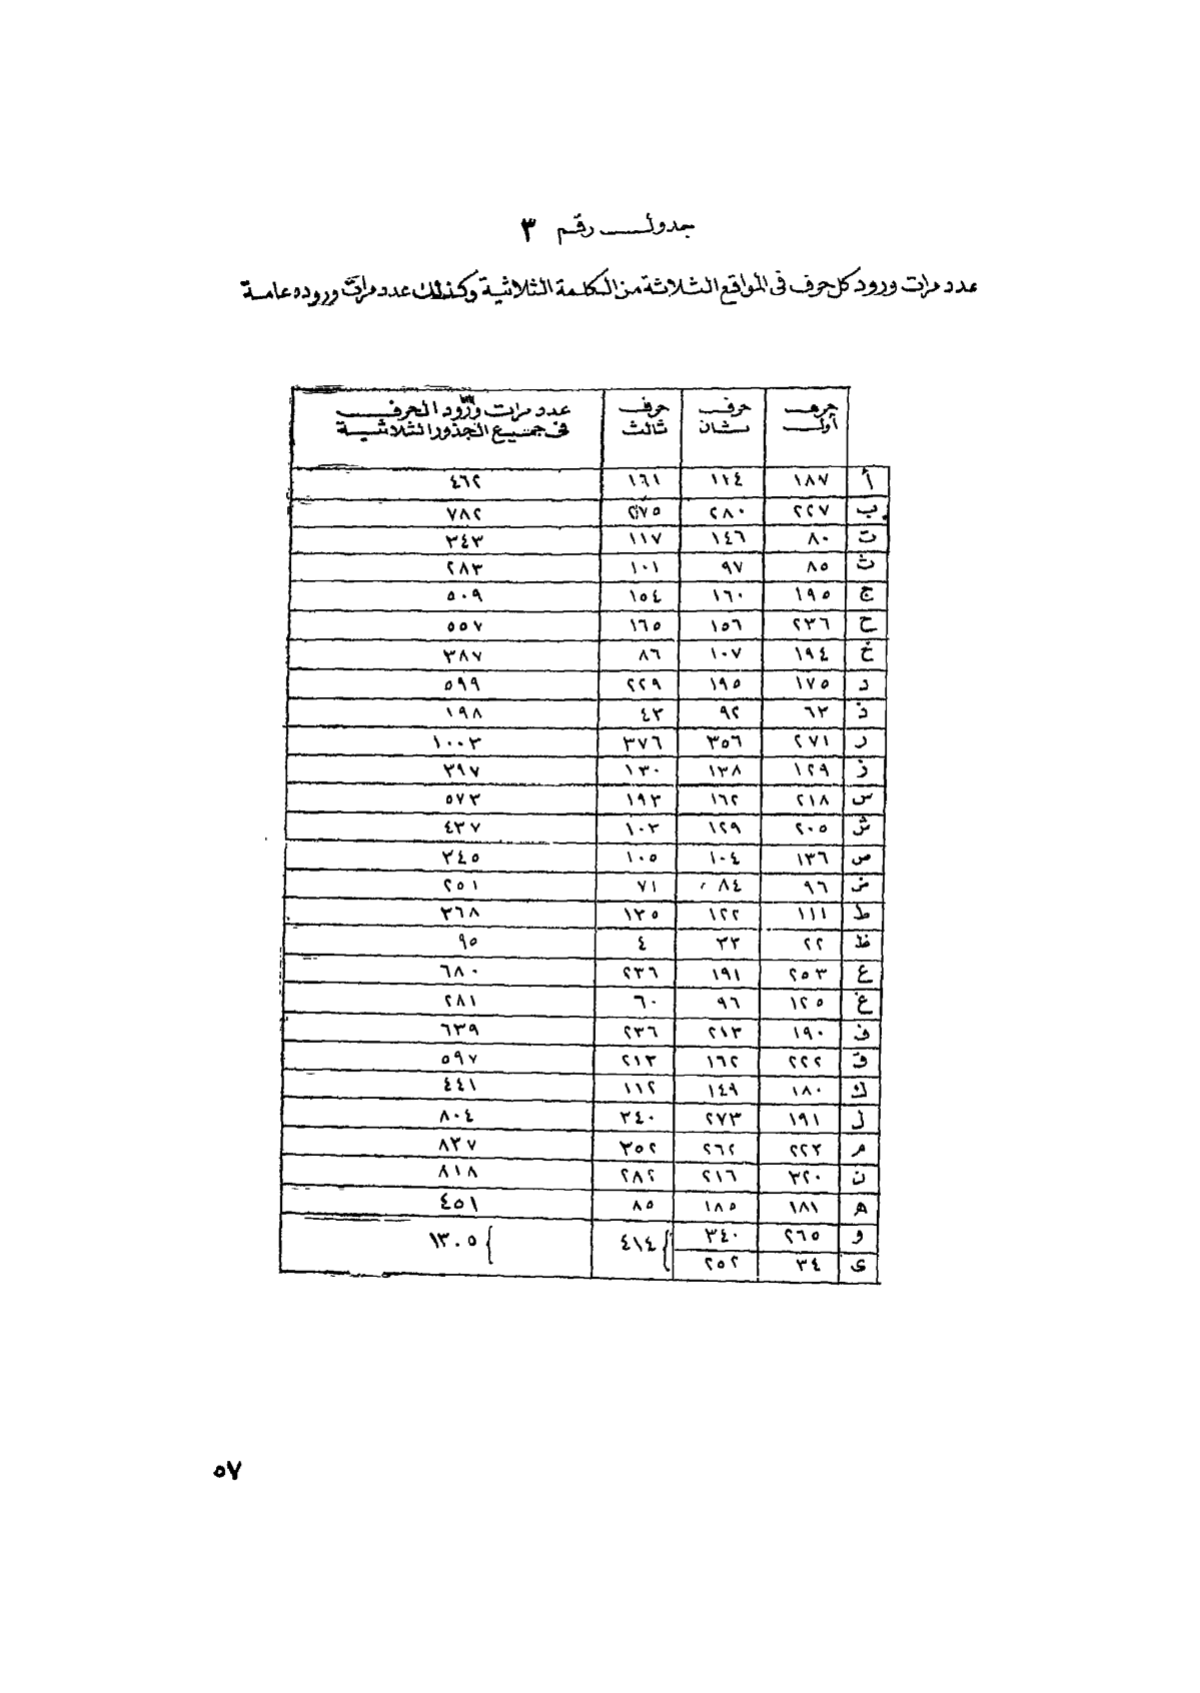 جدول رقم ٣
عدد مرات ورود كل حرف فى المواقع الثلاثة من الكلمة الثلاثية وكذلك عدد مرات وروده عامة
حرف أول	حرف ثان	حرف ثالث	عدد مرات ورود الحرف فى جميع الجذور الثلاثية
أ	١٨٧	١١٤	١٦١	٤٦٢
ب	٢٢٧	٢٨٠	٢٧٥	٧٨٢
ت	٨٠	١٤٦	١١٧	٣٤٣
ث	٨٥	٩٧	١٠١	٢٨٣
ج	١٩٥	١٦٠	١٥٤	٥٠٩
ح	٢٣٦	١٥٦	١٦٥	٥٥٧
خ	١٩٤	١٠٧	٨٦	٣٨٧
د	١٧٥	١٩٥	٢٢٩	٥٩٩
ذ	٦٣	٩٢	٤٣	١٩٨
ر	٢٧١	٣٥٦	٣٧٦	١٠٠٣
ز	١٢٩	١٣٨	١٣٠	٣٩٧
س	٢١٨	١٦٢	١٩٣	٥٧٣
ش	٢٠٥	١٢٩	١٠٣	٤٣٧
ص	١٣٦	١٠٤	١٠٥	٣٤٥
ض	٩٦	٨٤	٧١	٢٥١
ط	١١١	١٢٢	١٣٥	٣٦٨
ظ	٢٢	٣٣	٤	٩٥
ع	٢٥٣	١٩١	٢٣٦	٦٨٠
غ	١٢٥	٩٦	٦٠	٢٨١
ف	١٩٠	٢١٣	٢٣٦	٦٣٩
ق	٢٢٢	١٦٢	٢١٣	٥٩٧
ك	١٨٠	١٤٩	١١٢	٤٤١
ل	١٩١	٢٧٣	٣٤٠	٨٠٤
م	٢٢٣	٢٦٢	٣٥٢	٨٣٧
ن	٣٢٠	٢١٦	٢٨٢	٨١٨
ه	١٨١	١٨٥	٨٥	٤٥١
و	٢٦٥	٣٤٠	{٤١٤	{١٣٠٥
ى	٣٤	٢٥٢
٥٧